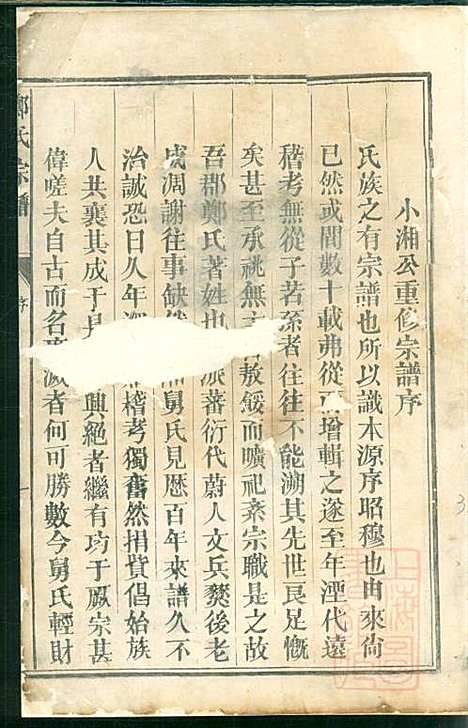 小湘公重修宗譜序
氏族之有宗譜也所以識本源序昭穆也由來尙
已然或間數十載弗從而增輯之遂至年湮代遠
稽考無從子若孫者往往不能溯其先世良足慨
矣甚至承祧無主若敖餒而曠祀紊宗職是之故
吾郡鄭氏著姓也派蕃衍代蔚人文兵燹後老
成凋謝往事缺然舅氏見歷百年來譜久不
治誠恐日久年稽考獨奮然捐貲倡始族
人共襄其成于是興絕者繼有功于厥宗甚
偉嗟夫自古而名滅者何可勝數今舅氏輕財
鄭氏宗譜
序
一